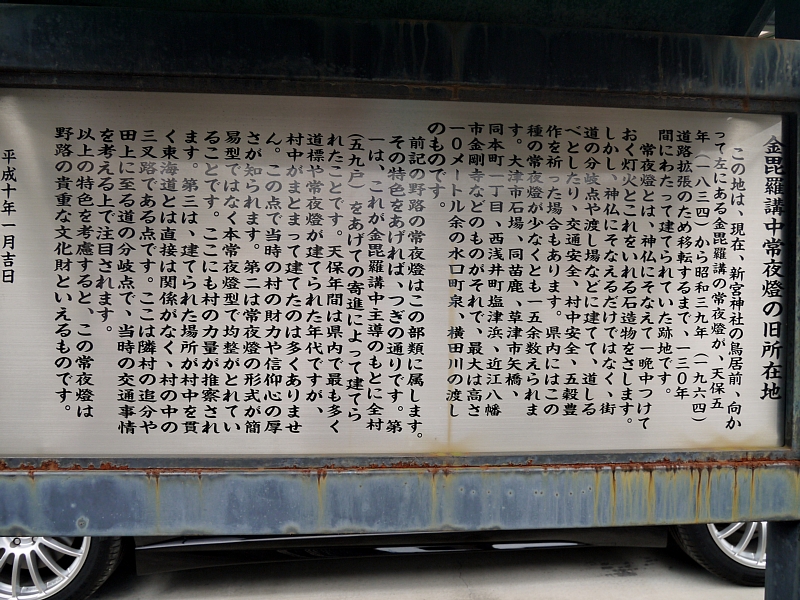 金毘羅講中常夜燈の旧所在地
この地は、現在、新宮神社の鳥居前、向か
って左にある金毘羅講の常夜燈が、天保五
年(一八三四)から昭和三九年(一九六四)
道路拡張のため移転するまで、一三〇年
間にわたって建てられていた跡地です。
常夜燈とは、神仏にそなえて一晩中つけて
おく灯火とこれをいれる石造物をさします。
しかし、神仏にそなえるだけではなく、街
道の分岐点や渡し場などに建て、道しる
べとしたり、交通安全、村中安全、五穀豊
作を祈った場合もあります。県内にはこの
種の常夜燈が少なくとも一五余数えられま
す。大津市石場、同苗鹿、草津市矢橋、
同本町一丁目、西浅井町塩津浜、近江八幡
市金剛寺などのものがそれで、最大は高さ
一〇メートル余の水口町泉、横田川の渡し
のものです。
前記の野路の常夜燈はこの部類に属します。
その特色をあげれば、つぎの通りです。第
一は、これが金毘羅講中主導のもとに全村
(五九戸)をあげての寄進によって建てら
れたことです。天保年間は県内で最も多く
道標や常夜燈が建てられた年代ですが、
村中がまとまって建てたのは多くありませ
ん。この点で当時の村の財力や信仰心の厚
さが知られます。第二は常夜燈の形式が簡
易型ではなく本常夜燈型で均整がとれてい
ることです。ここにも村の力量が推察され
ます。第三は、建てられた場所が村中を貫
く東海道とは直接は関係がなく、村の中の
三叉路である点です。ここは隣村の追分や
田上に至る道の分岐点で、当時の交通事情
を考える上で注目されます。
以上の特色を考慮すると、この常夜燈は
野路の貴重な文化財といえるものです。
平成十年一月吉日